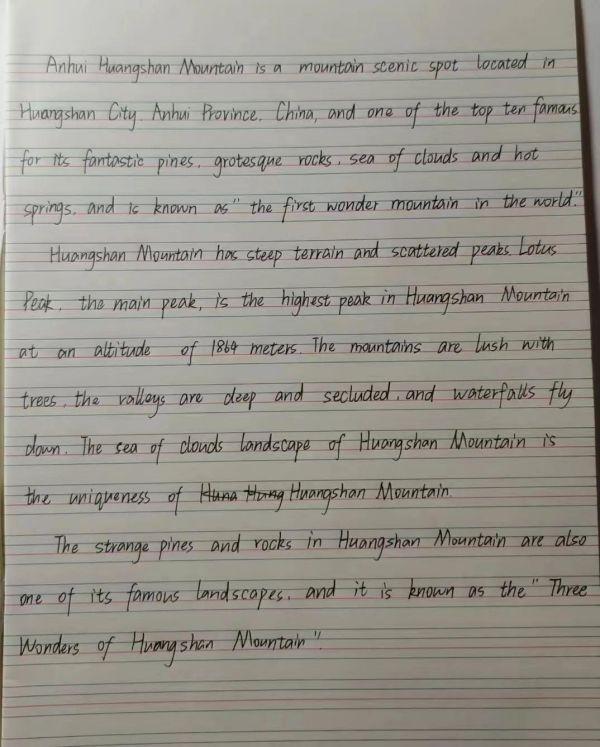 Anhui Huangshan Mountain is a mountain scenic spot located in
Huangshan City, Anhui Province, China, and one of the top ten famous
for its fantastic pines, grotesque rocks, sea of clouds and hot
springs, and is known as " the first wonder mountain in the world."
Huangshan Mountain has steep terrain and scattered peaks. Lotus
Peak, the main peak, is the highest peak in Huangshan Mountain
at an altitude of 1864 meters. The mountains are lush with
trees, the valleys are deep and secluded, and waterfalls fly
down. The sea of clouds landscape of Huangshan Mountain is
the uniqueness of Huna Hung Huangshan Mountain.
The strange pines and rocks in Huangshan Mountain are also
one of its famous landscapes, and it is known as the " Three
Wonders of Huangshan Mountain ".